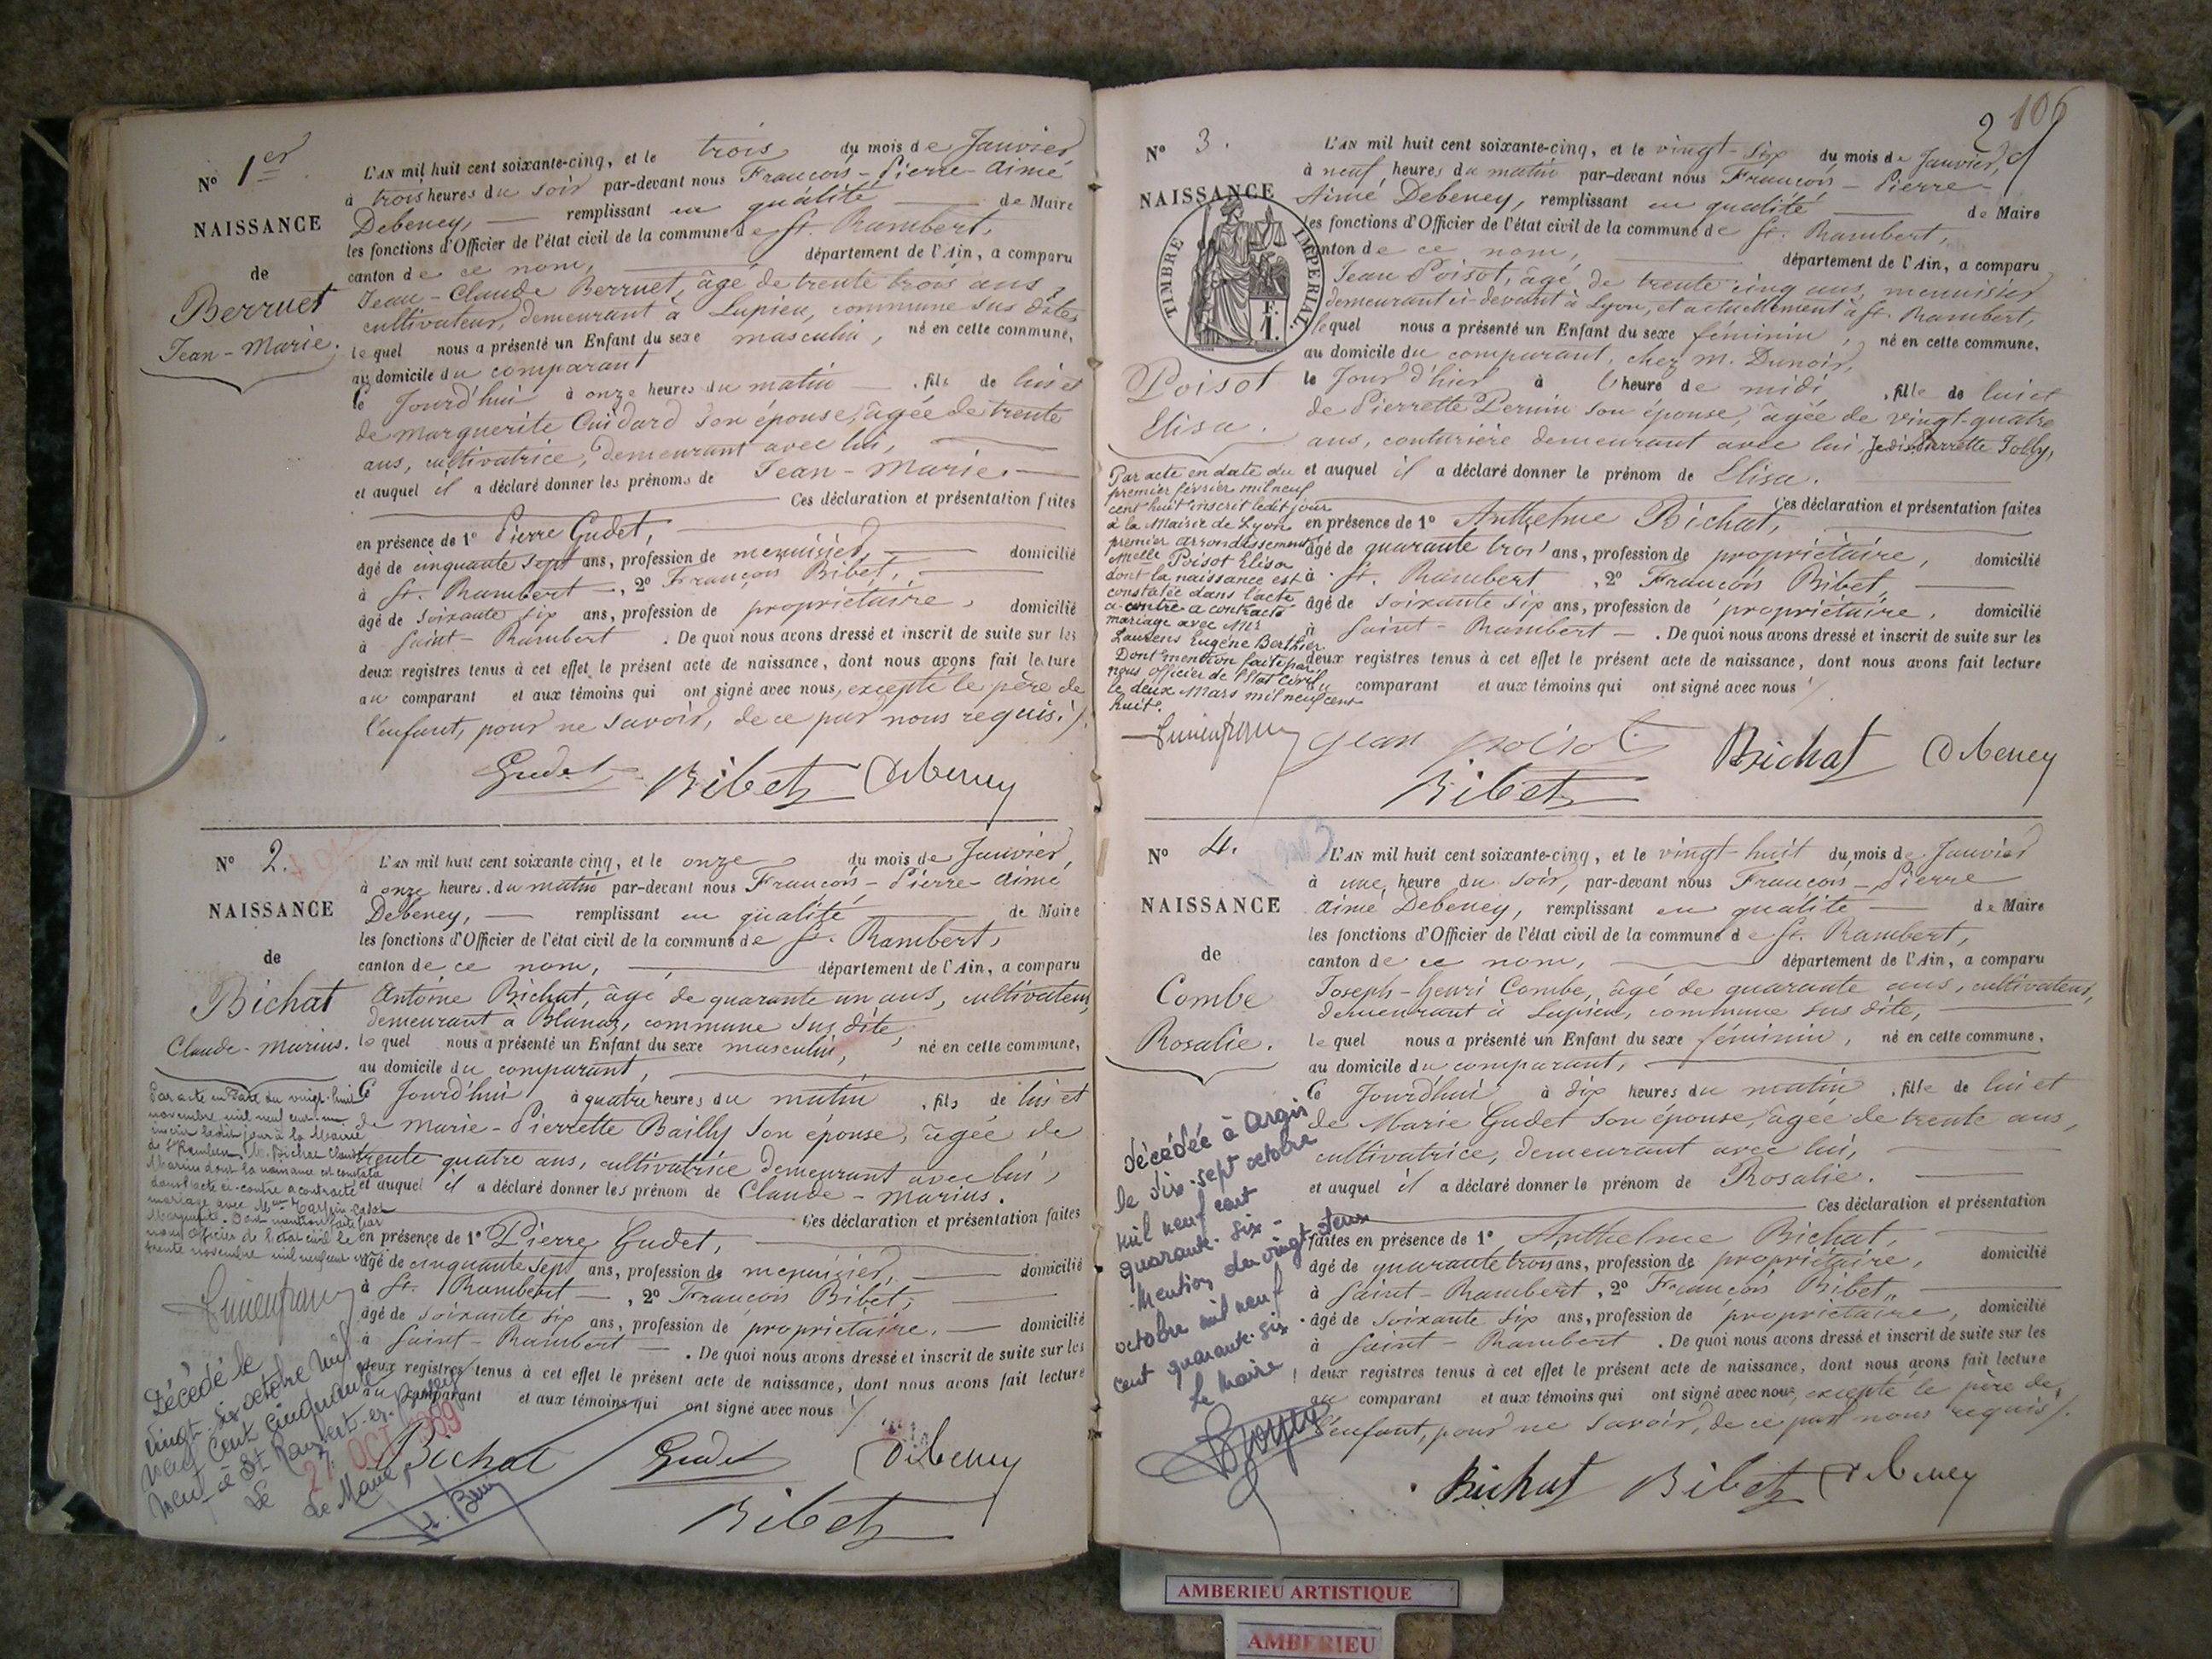 N° 1er
NAISSANCE
de
Berruet
Jean-Marie.
L'AN mil huit cent soixante-cinq, et le trois du mois de Janvier
à trois heures du soir par-devant nous François-Pierre-Aimé
Debeney, remplissant en qualité de Maire
les fonctions d'Officier de l'état civil de la commune de St. Rambert,
canton de ce nom, département de l'Ain, a comparu
Jean-Claude Berruet, âgé de trente trois ans,
cultivateur, demeurant à Lupieu, commune sus dite,
lequel nous a présenté un Enfant du sexe masculin, né en cette commune,
au domicile du comparant
ce Jourd'hui à onze heures du matin, fils de lui et
de Marguerite Cuidard son épouse, âgée de trente
ans, cultivatrice, demeurant avec lui,
et auquel il a déclaré donner les prénoms de Jean-Marie.
Ces déclaration et présentation faites
en présence de 1° Pierre Gudet,
âgé de cinquante sept ans, profession de menuisier, domicilié
à St. Rambert, 2° François Bibet,
âgé de soixante six ans, profession de propriétaire, domicilié
à Saint-Rambert. De quoi nous avons dressé et inscrit de suite sur les
deux registres tenus à cet effet le présent acte de naissance, dont nous avons fait lecture
au comparant et aux témoins qui ont signé avec nous, excepté le père de
l'enfant, pour ne savoir, de ce par nous requis./.
Gudet Bibet Debeney
N° 2.
NAISSANCE
de
Bichat
Claude-Marius.
L'AN mil huit cent soixante-cinq, et le onze du mois de Janvier,
à onze heures du matin par-devant nous François-Pierre-Aimé
Debeney, remplissant en qualité de Maire
les fonctions d'Officier de l'état civil de la commune de St. Rambert,
canton de ce nom, département de l'Ain, a comparu
Antoine Bichat, âgé de quarante un ans, cultivateur,
demeurant à Blanaz, commune sus dite,
lequel nous a présenté un Enfant du sexe masculin, né en cette commune,
au domicile du comparant,
ce Jourd'hui à quatre heures du matin, fils de lui et
de Marie-Pierrette Bailly son épouse, âgée de
trente quatre ans, cultivatrice demeurant avec lui,
et auquel il a déclaré donner les prénom de Claude-Marius.
Ces déclaration et présentation faites
en présence de 1° Pierre Gudet,
âgé de cinquante sept ans, profession de menuisier, domicilié
à St. Rambert, 2° François Bibet,
âgé de soixante six ans, profession de propriétaire, domicilié
à Saint-Rambert. De quoi nous avons dressé et inscrit de suite sur les
deux registres tenus à cet effet le présent acte de naissance, dont nous avons fait lecture
au comparant et aux témoins qui ont signé avec nous ./.
Bichat Gudet Debeney
Bibet
Par acte en date du vingt-huit
novembre mil neuf cent un
inscrit ledit jour à la Mairie
de St Rambert, M. Bichat Claude
Marius dont la naissance est constatée
dans l'acte ci-contre a contracté
mariage avec
Marguerite. Dont mention faite par
nous Officier de l'état civil le
trente novembre mil neuf cent un
Décédé le
vingt-six octobre mil
neuf cent cinquante
neuf à St Rambert-en-Bugey
Le 27 OCT 1959
Le Maire,
2 106
N° 3.
NAISSANCE
TIMBRE IMPERIAL.
F.
1.
Poisot
Elisa.
L'AN mil huit cent soixante-cinq, et le vingt-six du mois de Janvier,
à neuf heures du matin par-devant nous François-Pierre-
Aimé Debeney, remplissant en qualité de Maire
les fonctions d'Officier de l'état civil de la commune de St. Rambert,
canton de ce nom, département de l'Ain, a comparu
Jean Poisot, âgé de trente cinq ans, menuisier
demeurant ci-devant à Lyon, et actuellement à St. Rambert,
lequel nous a présenté un Enfant du sexe féminin, né en cette commune,
au domicile du comparant, chez M. Dunoir,
le Jour d'hier à l'heure de midi, fille de lui et
de Pierrette Pernin son épouse, âgée de vingt-quatre
ans, couturière demeurant avec lui, Je dis Pierrette Jolly,
et auquel il a déclaré donner le prénom de Elisa.
Ces déclaration et présentation faites
en présence de 1° Anthelme Bichat,
âgé de quarante trois ans, profession de propriétaire, domicilié
à St. Rambert, 2° François Bibet,
âgé de soixante six ans, profession de propriétaire, domicilié
à Saint-Rambert. De quoi nous avons dressé et inscrit de suite sur les
deux registres tenus à cet effet le présent acte de naissance, dont nous avons fait lecture
au comparant et aux témoins qui ont signé avec nous ./.
Jean poisot Bichat Debeney
Bibet
Par acte en date du
premier février mil neuf
cent huit inscrit ledit jour
à la Mairie de Lyon
premier arrondissement
Melle Poisot Elisa
dont la naissance est
constatée dans l'acte
ci-contre a contracté
mariage avec Mr
Laurens Eugène Berthier
Dont mention faite par
nous officier de l'Etat Civil
le deux Mars mil neuf cent
huit.
N° 4.
NAISSANCE
de
Combe
Rosalie.
L'AN mil huit cent soixante-cinq, et le vingt-huit du mois de Janvier
à une heure du soir, par-devant nous François-Pierre
Aimé Debeney, remplissant en qualité de Maire
les fonctions d'Officier de l'état civil de la commune de St. Rambert,
canton de ce nom, département de l'Ain, a comparu
Joseph-Henri Combe, âgé de quarante ans, cultivateur,
demeurant à Lupieu, commune sus dite,
lequel nous a présenté un Enfant du sexe féminin, né en cette commune,
au domicile du comparant,
ce Jourd'hui à dix heures du matin, fille de lui et
de Marie Gudet son épouse, âgée de trente ans,
cultivatrice, demeurant avec lui,
et auquel il a déclaré donner le prénom de Rosalie.
Ces déclaration et présentation
faites en présence de 1° Anthelme Bichat,
âgé de quarante trois ans, profession de propriétaire, domicilié
à Saint-Rambert, 2° François Bibet,
âgé de soixante six ans, profession de propriétaire, domicilié
à Saint-Rambert. De quoi nous avons dressé et inscrit de suite sur les
deux registres tenus à cet effet le présent acte de naissance, dont nous avons fait lecture
au comparant et aux témoins qui ont signé avec nous, excepté le père de
l'enfant, pour ne savoir, de ce par nous requis./.
Bichat Bibet Debeney
Décédée à Argis
le dix-sept octobre
mil neuf cent
quarante-six-
Mention du vingt-deux
octobre mil neuf
cent quarante-six
Le Maire,
AMBERIEU ARTISTIQUE
AMBERIEU